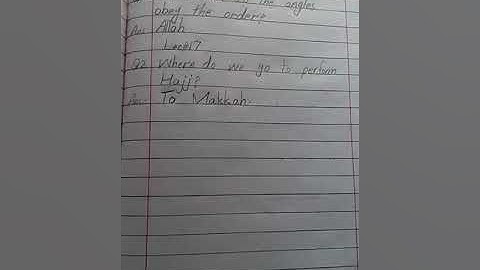 the angles
obey the order?
Ans Allah
Lec#17
Q2 Where do we go to perform
Hajj?
Ans: To Makkah.